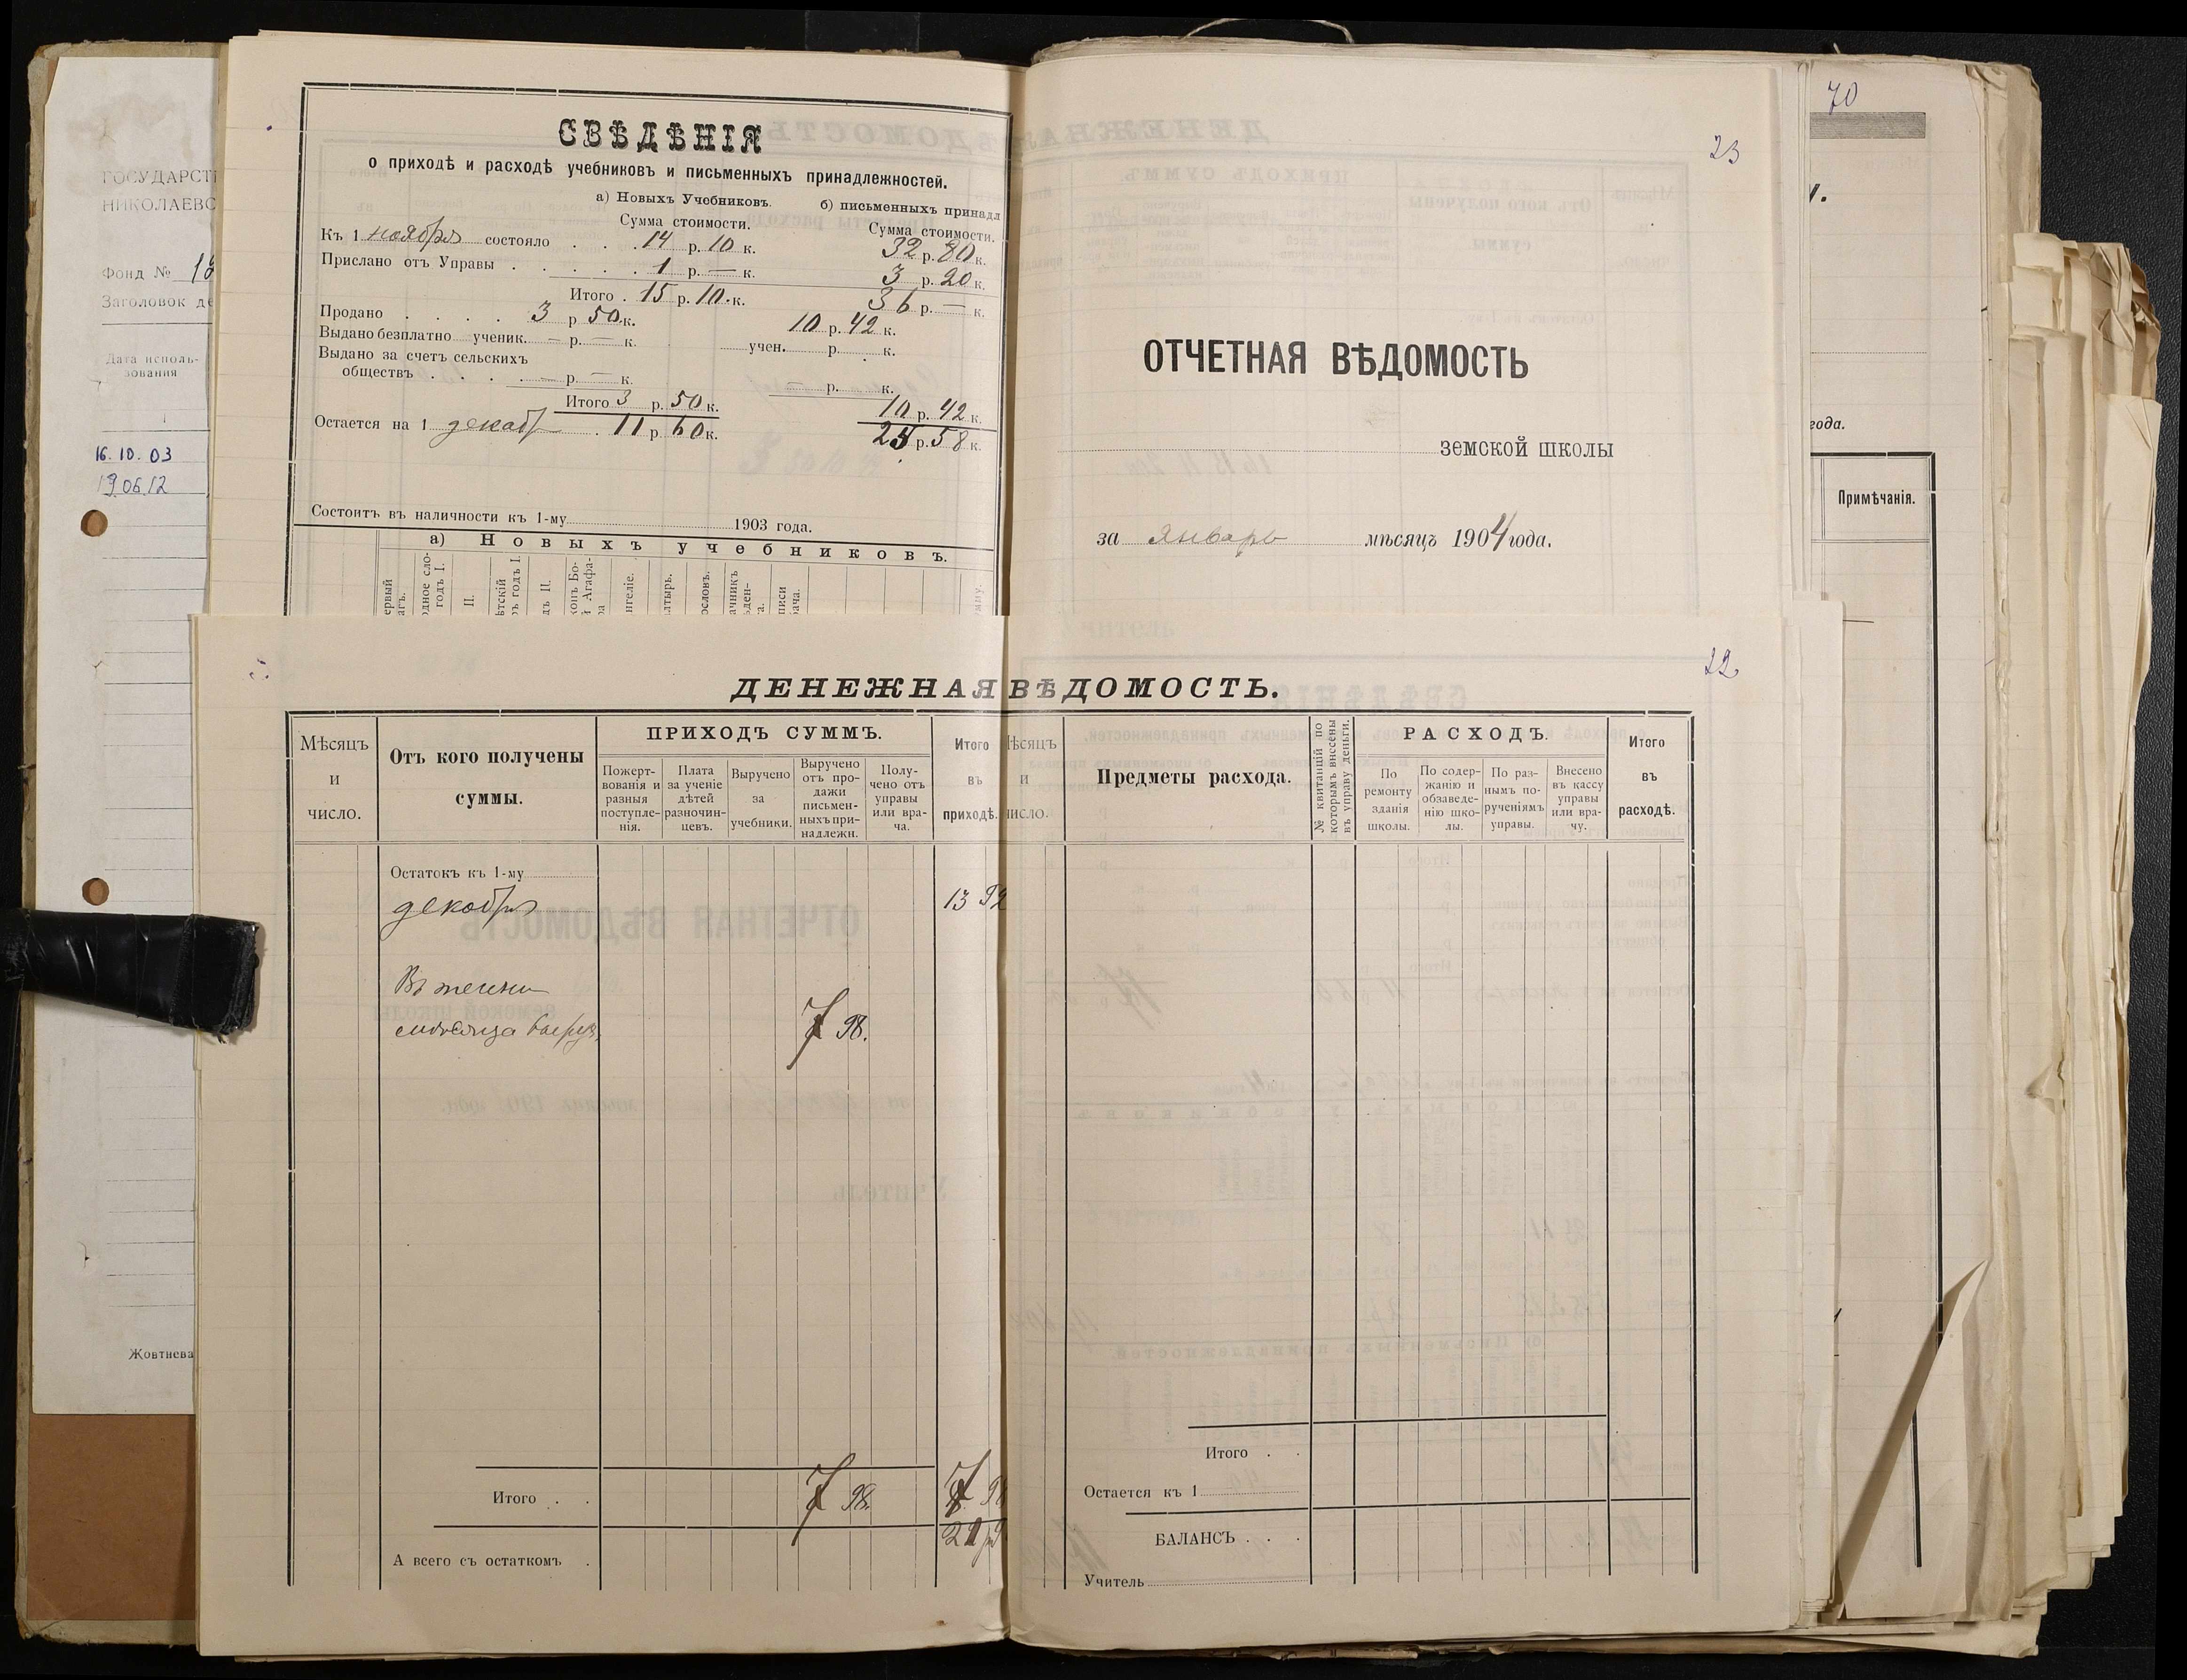 ГОСУДАРСТ
НИКОЛАЕВС
Фонд №
Заголовок де
Дата исполь-
зования
16.10.03
190612
Жовтнева
СВѢДѢНІЯ
о приходѣ и расходѣ учебниковъ и письменныхъ принадлежностей.
а) Новыхъ Учебниковъ. б) письменныхъ принадл
Сумма стоимости. Сумма стоимости.
Къ 1 ноября состояло . . . 14 р. 10 к. 32 р. 80 к.
Прислано отъ Управы . . . . . 1 р. — к. 3 р. 20 к.
Итого . 15 р. 10. к. 36 р. — к.
Продано . . . . 3 р 50 к. 10 р. 42 к.
Выдано безплатно ученик. — р. — к. учен. р. к.
Выдано за счет сельскихъ
обществъ . . . . — р. — к. — р. к.
Итого 3 р. 50 к. 10 р. 42 к.
Остается на 1 декабр . 11 р. 60 к. 25 р. 58 к.
Состоитъ въ наличности къ 1-му 1903 года.
а) Новыхъ учебниковъ.
23
ОТЧЕТНАЯ ВѢДОМОСТЬ
земской школы
за январь мѣсяцъ 1904 года.
70
года.
Примѣчанія.
22
ДЕНЕЖНАЯ ВѢДОМОСТЬ.
Мѣсяцъ
и
число.
Отъ кого получены
суммы.
ПРИХОДЪ СУММЪ.
Пожерт-
вованія и
разныя
поступле-
нія.
Плата
за ученіе
дѣтей
разночин-
цевъ.
Выручено
за
учебники.
Выручено
отъ про-
дажи
письмен-
ныхъ при-
надлежн.
Полу-
чено отъ
управы
или вра-
ча.
Итого
въ
приходѣ.
Остатокъ къ 1-му
декабря 13 92
Въ течении
мѣсяца выруч. 7 98.
Итого . . 7 98. 7 98
А всего съ остаткомъ .
ѣсяцъ
и
число.
Предметы расхода.
№ квитанцій по
которымъ внесены
въ управу деньги.
РАСХОДЪ.
По
ремонту
зданія
школы.
По содер-
жанію и
обзаведе-
нію шко-
лы.
По раз-
нымъ по-
рученіямъ
управы.
Внесено
въ кассу
управы
или вра-
чу.
Итого
въ
расходѣ.
Итого . .
Остается къ 1
БАЛАНСЪ . . .
Учитель